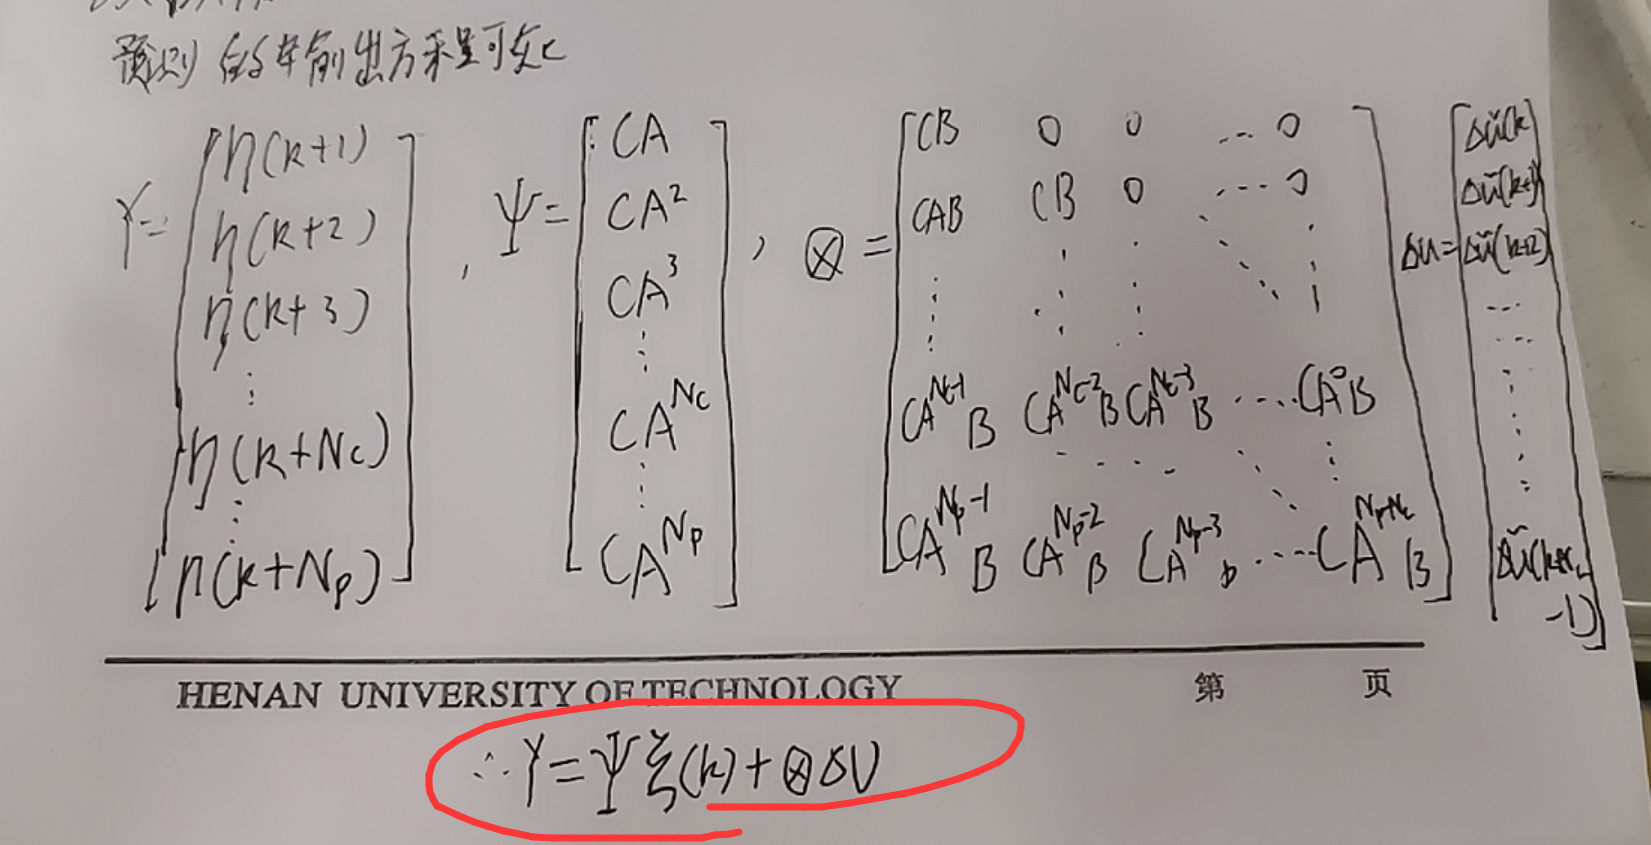 预测的输出方程可变
Y = [η(k+1) η(k+2) η(k+3) ⋮ η(k+Nc) ⋮ η(k+Np)] , Ψ = [CA CA² CA³ ⋮ CA^Nc ⋮ CA^Np] , ⊗ =
[CB 0 0 ... 0
CAB CB 0 ... 0
⋮ ⋮ ⋮ ⋱ ⋮
CA^(Nc-1)B CA^(Nc-2)B CA^(Nc-3)B ... CA^0B
⋮ ... ⋱ ⋮
CA^(Np-1)B CA^(Np-2)B CA^(Np-3)B ... CA^(Np-Nc)B]
Δu = [Δũ(k) Δũ(k+1) Δũ(k+2) ... ... ⋮ Δũ(k+Nc-1)]
HENAN UNIVERSITY OF TECHNOLOGY 第 页
∴ Y = Ψξ(k) + ⊗ΔU